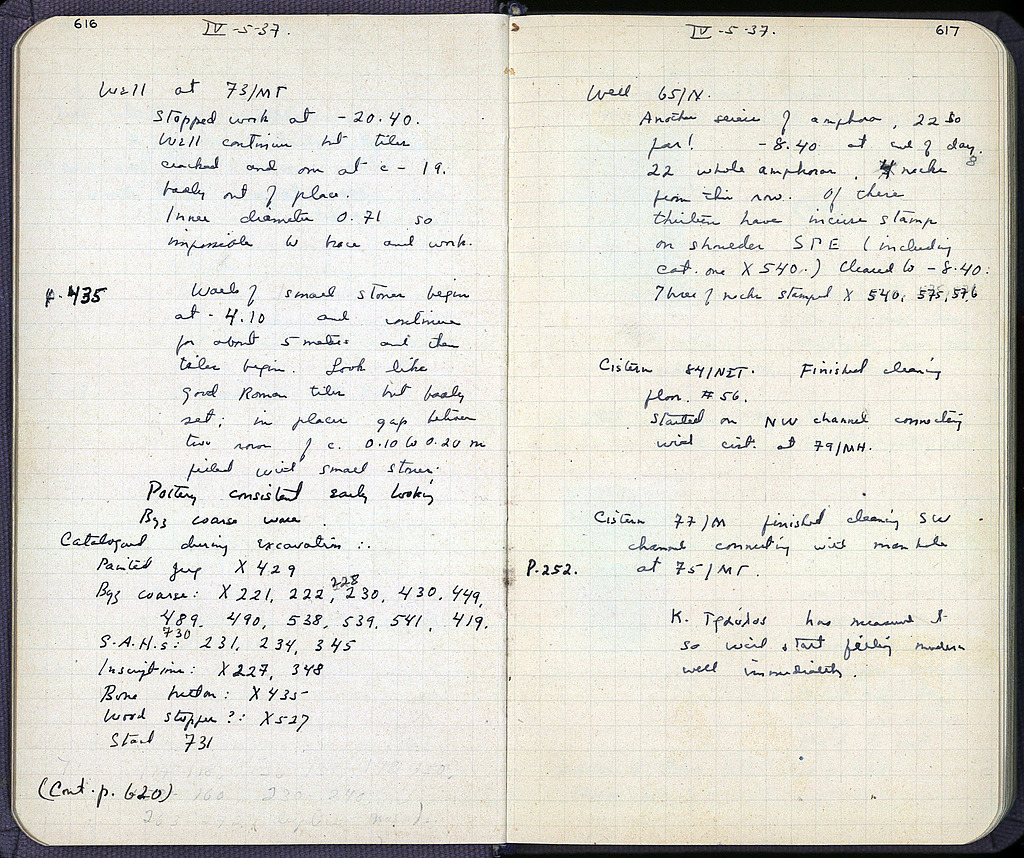 616
IV-5-37.
Well at 73/MT
Stopped work at -20.40.
Well continues but tiles
cracked and one at c-19.
badly out of place.
Inner diameter 0.71 so
impossible to brace and work.
p. 435
Walls of small stones begin
at -4.10 and continue
for about 5 meters and then
tiles begin. Look like
good Roman tiles but badly
set; in places gap between
two rows of c. 0.10 to 0.20 m
filled with small stones.
Pottery consistent early looking
Byz coarse ware.
Catalogued during excavation:.
Painted jug X 429
228
Byz coarse: X 221, 222, 230, 430, 449,
489, 490, 538, 539, 541, 419.
730
S.A.H.s: 231, 234, 345
Inscriptions: X 227, 348
Bone button: X 435
Wood stopper?: X 527
Start 731
(Cont. p. 620)
617
IV-5-37.
Well 65/N.
Another series of amphoras, 22 so
far! -8.40 at end of day.
8
22 whole amphoras, necks
from this row. Of these
thirteen have incise stamp
on shoulder SPE (including
cat. one X 540.) Cleared to -8.40.
Three of necks stamped X 540, 575, 576
Cistern 84/NIT. Finished cleaning
floor. #56.
Started on NW channel connecting
with cist. at 79/MH.
Cistern 77/M finished cleaning SW
channel connecting with manhole
P.252. at 75/MT.
K. Τραυλος has measured it
so will start filling modern
well immediately.